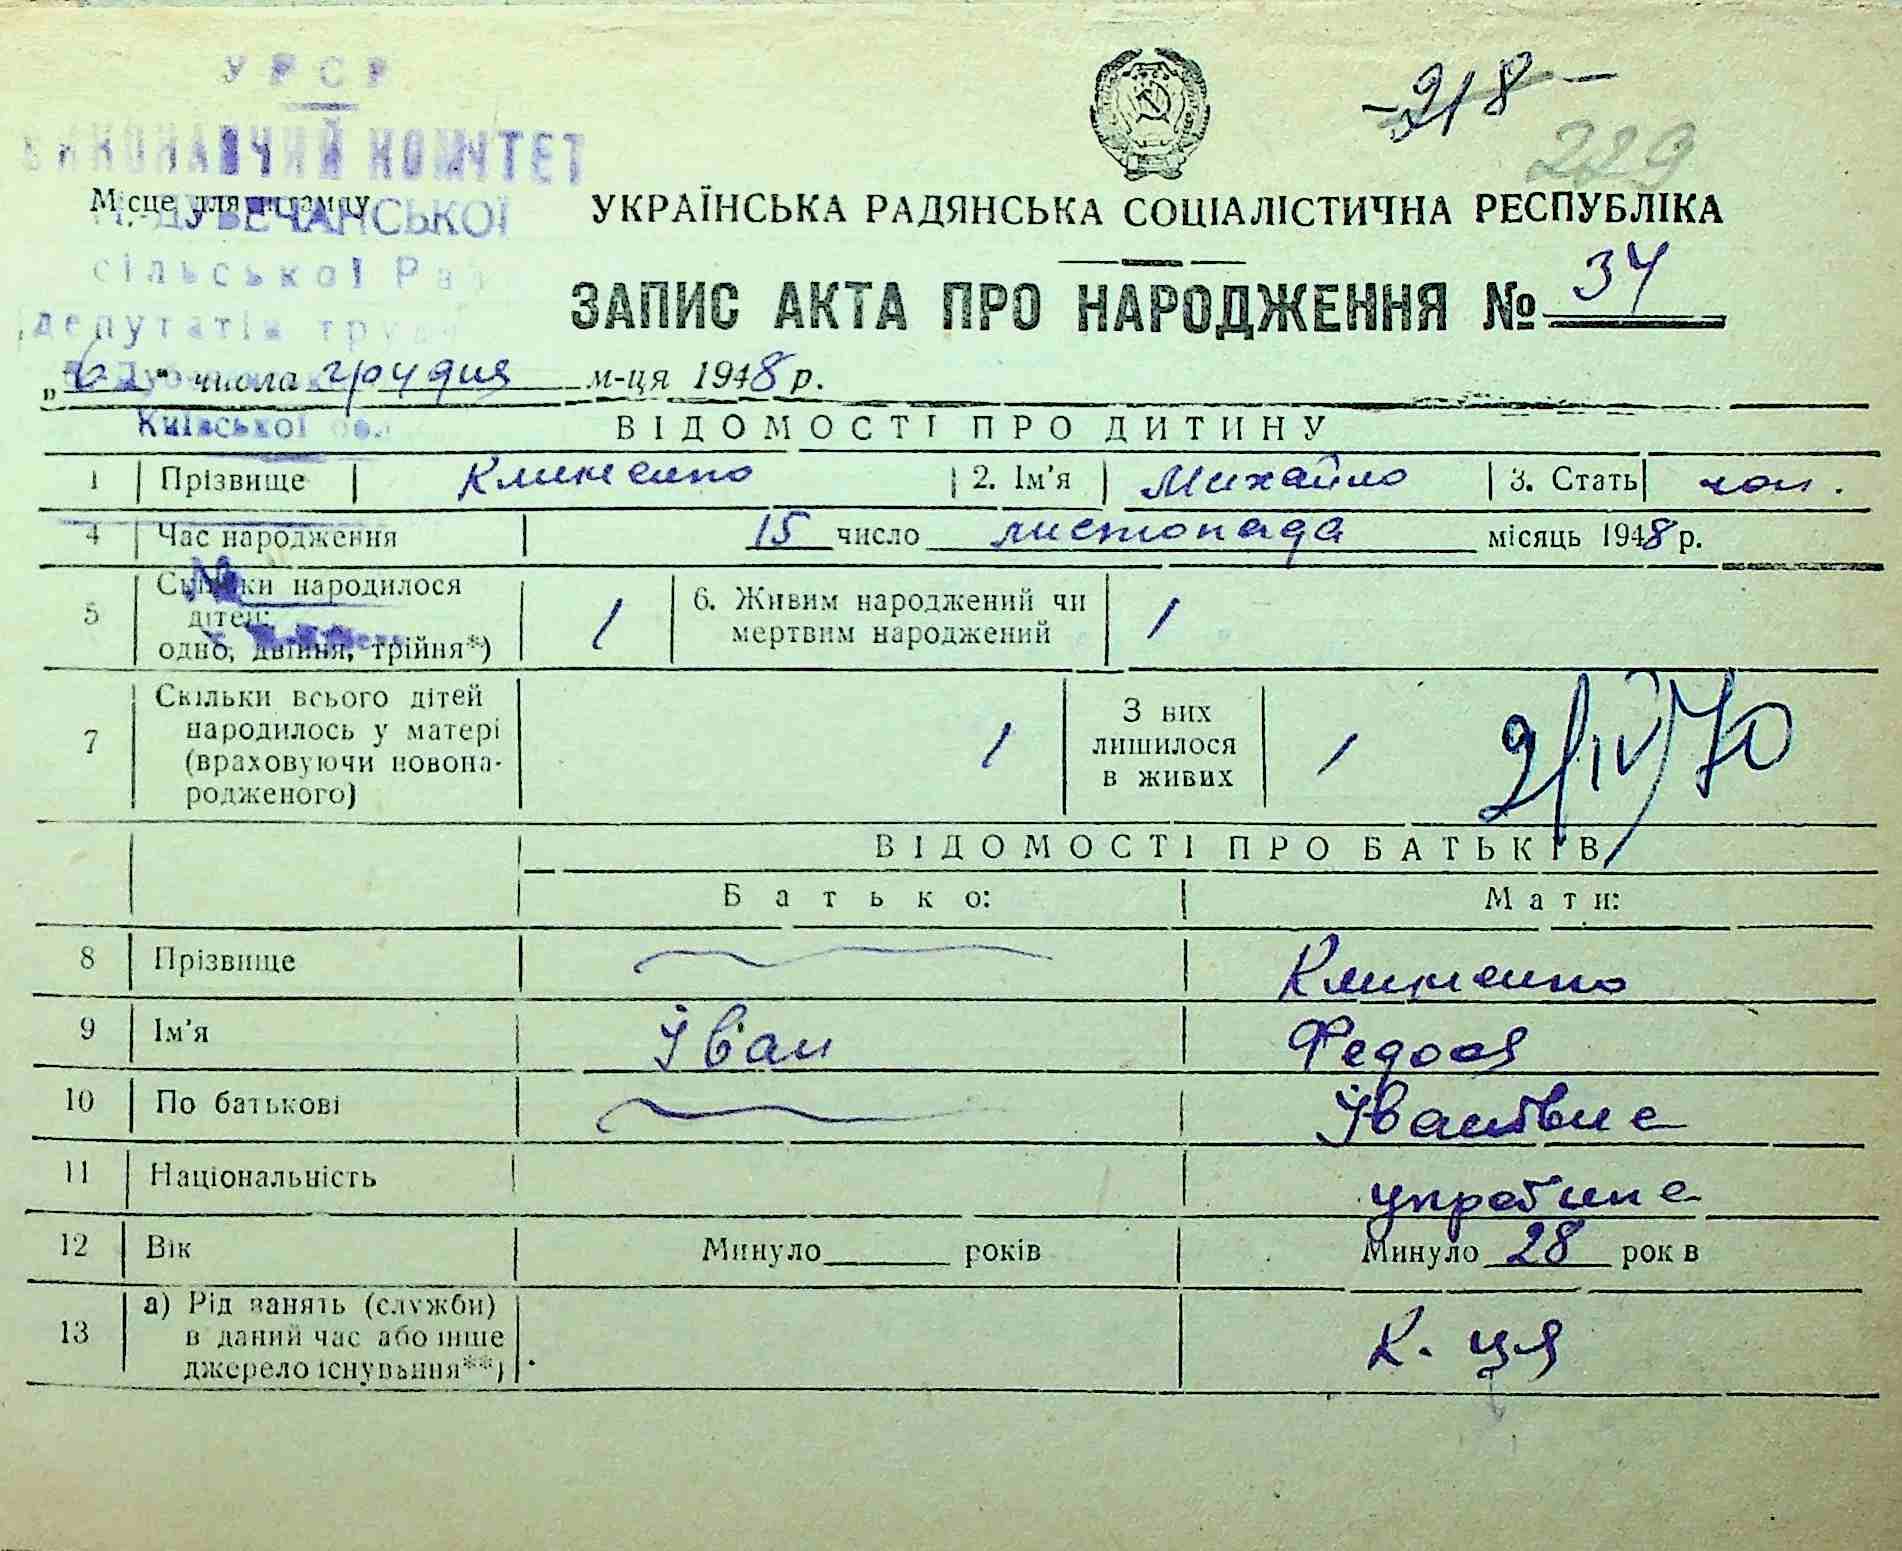 УРСР
ВИКОНАВЧИЙ КОМІТЕТ
-218-
229
Місце для штампу
ДУБЕЧАНСЬКОЇ
УКРАЇНСЬКА РАДЯНСЬКА СОЦІАЛІСТИЧНА РЕСПУБЛІКА
сільської Рад
депутатів
ЗАПИС АКТА ПРО НАРОДЖЕННЯ № 34
„6" числа грудня м-ця 1948 р.
Київської обл
ВІДОМОСТІ ПРО ДИТИНУ
1 Прізвище Клименко 2. Ім'я Михайло 3. Стать чол.
4 Час народження 15 число листопада місяць 1948 р.
5 Скільки народилося дітей: одно, двійня, трійня*) 1 6. Живим народжений чи мертвим народжений 1
7 Скільки всього дітей народилось у матері (враховуючи новонародженого) 1 З них лишилося в живих 1
2/IV 70
ВІДОМОСТІ ПРО БАТЬКІВ
Батько: Мати:
8 Прізвище Клименко
9 Ім'я Іван Федося
10 По батькові Іванівна
11 Національність українка
12 Вік Минуло років Минуло 28 рок в
13 а) Рід занять (служби) в даний час або інше джерело існування**) К-ця